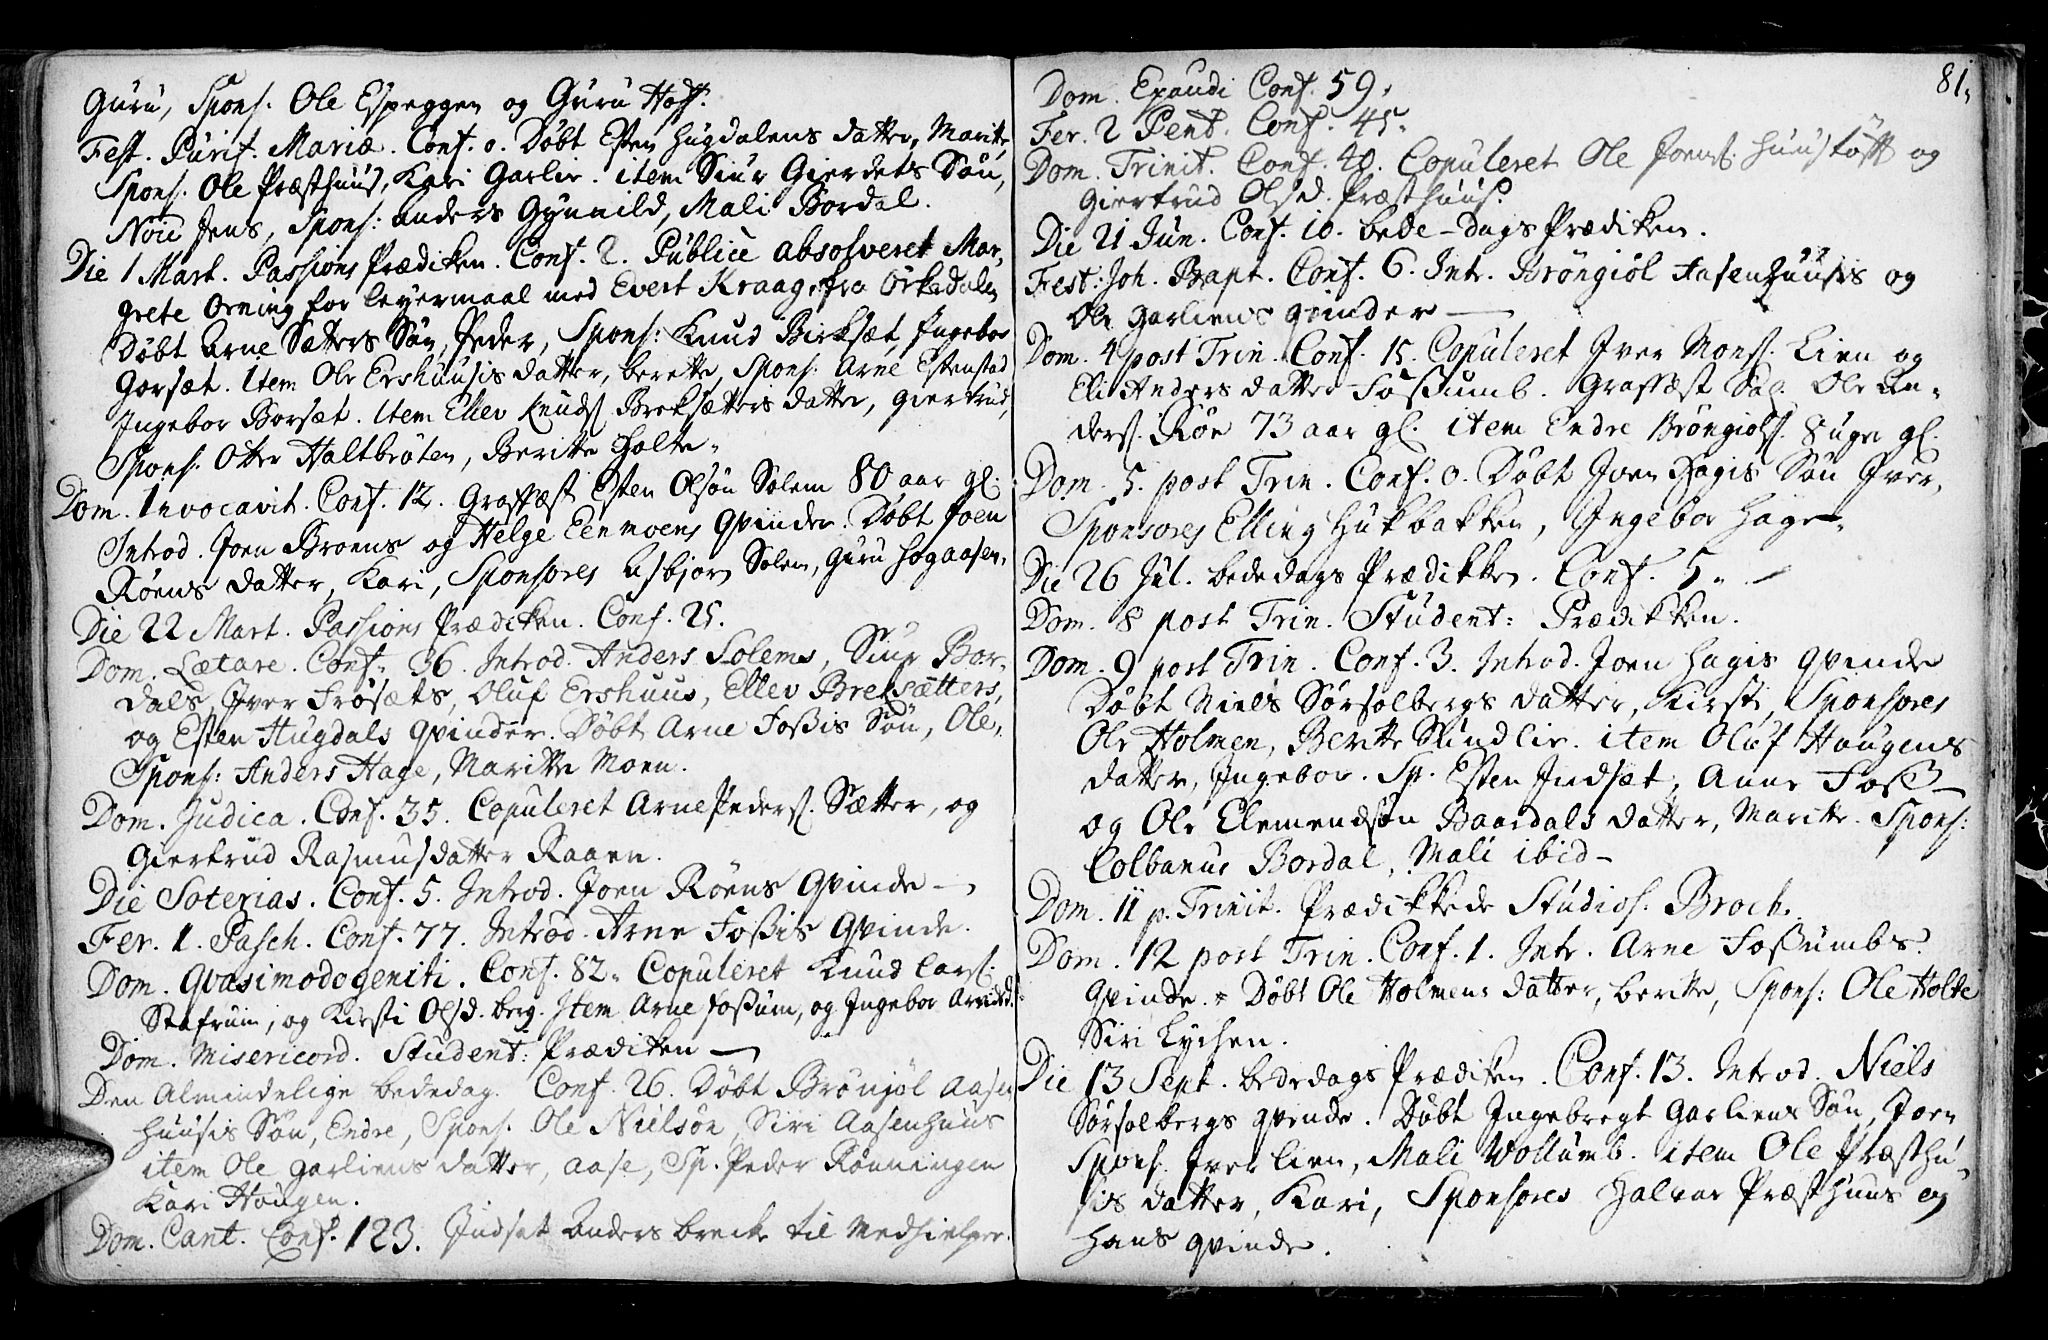 Guru, Spons. Ole Espeggen og Guru Hoff.
Fest. Purif. Mariæ. Conf. 0. Døbt Esten Hugdalens datter, Marite,
Spons. Ole Præsthuus, Kari Garlie. item Siur Gierdets Søn,
Nom Jens, Spons: Anders Gynnild, Mali Bordal.
Die 1 Mart. Passions Prædiken. Conf. 2. Publicè absolveret Mar-
grete Orning for leyermaal med Evert Kraage fra Örkedalen
Döbt Arne Sætters Søn, Peder, Spons: Knud Birksæt, Ingebor
Gorsæt. Item Ole Ershuusis datter, berette, Spons. Arne Estenstad
Ingebor Borsæt. Item Ellev Knuds. Breksætters datter, giertrud,
Spons. Otter Haltbröten, Beritte Holte.
Dom. Invocavit. Conf. 12. Graffæst Esten Olsøn Solem 80 aar gl.
Introd. Joen Broens og Helge Eenmoens Qvinder. Döbt Joen
Röens datter, Kari, Sponsores Asbjørn Solem, Guru Hogaasen.
Die 22 Mart. Passions Prædiken. Conf. 25.
Dom. Lætare. Conf. 36. Introd. Anders Solems, Siur Bor-
dals, Iver Frösæts, Oluf Ershuus, Ellev Breksætters,
og Esten Hugdals Qvinder. Döbt Arne Foßis Søn, Ole,
Spons: Anders Hage, Maritte Moen.
Dom. Judica. Conf. 35. Copuleret Arne Peders. Sætter, og
Giertrud Rasmusdatter Raaen.
Die Soterias. Conf. 5. Introd. Joen Röens Qvinde —
Fer. 1. Pasch. Conf. 77. Introd. Arne Foßis Qvinde.
Dom. Qvasimodogeniti. Conf. 82. Copuleret Knud Lars.
Stafrum, og Kirsti Olsd. berg. Item Arne Foßum, og Ingebor Arnesd.
Dom. Misericord. Student: Prædiken —
Den Almindelige bededag. Conf. 26. Döbt Brönjöl Aasen
huusis Søn, Endre, Spons. Ole Nielsön, Siri Aasenhuus
item Ole Garliens datter, Aase, Sp. Peder Rönningen
Kari Hougen.
Dom. Cant. Conf. 123. Indsat Anders brecke til Medhielper.
81.
Dom. Exaudi Conf. 59.
Fer. 2 Pent. Conf. 45.
Dom. Trinit. Conf. 40. Copuleret Ole Joens. Huustöft og
Giertrud Olsd. Præsthuus.
Die 21 Jun. Conf. 10. bede-dags Prædiken.
Fest: Joh. Bapt. Conf. 6. Intr. Bröngiöl Aasenhuusis og
Ole Garliens qvinder —
Dom. 4 post Trin. Conf. 15. Copuleret Iver Mons. Lien og
Eli Anders datter Foßumb. Graffæst Sal. Ole An-
ders. Röe 73 aar gl. item Endre Bröngiöls. 8 uger gl.
Dom. 5. post Trin. Conf. 0. Döbt Joen Hagis Søn Iver,
Sponsores Elling Hukbakken, Ingebor Hage.
Die 26 Jul. bededags Prædikken. Conf. 5. —
Dom. 8 post Trin. Student: Prædikken.
Dom. 9 post Trin. Conf. 3. Introd. Joen Hagis qvinde
Döbt Niels Sörsolbergs datter, Kirsti, Sponsores
Ole Holmen, Beritte Sundlie. item Oluf Hougens
datter, Ingebor. Sp. Esten Indsæt, Anne Foß —
og Ole Elemendsön Baardals datter, Maritte. Spons:
Colbanus Bordal, Mali ibid —
Dom. 11 p. Trinit. Prædikkede Studios. Broch.
Dom. 12 post Trin. Conf. 1. Intr. Arne Foßumbs
Qvinde. Döbt Ole Holmens datter, berite, Spons: Ole Holte
Siri Lychen.
Die 13 Sept. bededags Prædiken. Conf. 13. Introd. Niels
Sörsolbergs qvinde. Döbt Ingebregt Garliens Søn, Joen
Spons. Iver lien, Mali Wollumb. item Ole Præsthu-
sis datter, Kari, Sponsores Halvor Præsthuus og
hans qvinde.